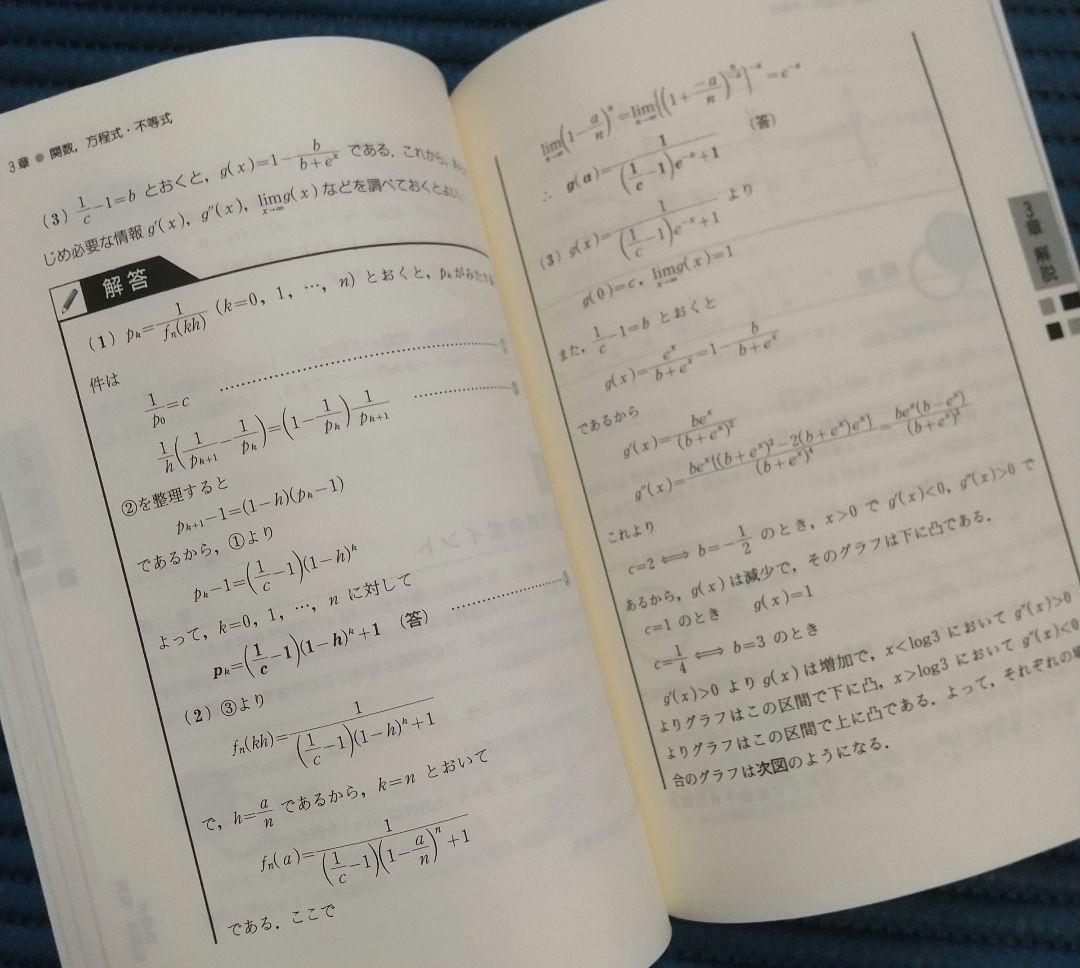 3章 ● 関数，方程式・不等式
(3) 1/c−1=b とおくと，g(x)=1−b/(b+e^x) である．これから，
じめ必要な情報 g′(x)，g″(x)，lim_{x→∞}g(x) などを調べておくとよい
解答
(1) p_k=1/f_n(kh) (k=0，1，…，n) とおくと，p_kがみたす
件は
1/p_0=c
1/h(1/p_{k+1}−1/p_k)=(1−1/p_k)1/p_{k+1}
②を整理すると
p_{k+1}−1=(1−h)(p_k−1)
であるから，①より
p_k−1=(1/c−1)(1−h)^k
よって，k=0，1，…，n に対して
p_k=(1/c−1)(1−h)^k+1 (答)
(2) ③より
f_n(kh)=1/((1/c−1)(1−h)^k+1)
で，h=a/n であるから，k=n とおいて
f_n(a)=1/((1/c−1)(1−a/n)^n+1)
である．ここで
lim_{n→∞}(1−a/n)^n=lim_{n→∞}{(1+(−a)/n)^{n/(−a)}}^{−a}=e^{−a}
∴ g(a)=1/((1/c−1)e^{−a}+1) (答)
(3) g(x)=1/((1/c−1)e^{−x}+1) より
g(0)=c，lim_{x→∞}g(x)=1
また，1/c−1=b とおくと
g(x)=e^x/(b+e^x)=1−b/(b+e^x)
であるから
g′(x)=be^x/(b+e^x)^2
g″(x)=be^x{(b+e^x)^2−2(b+e^x)e^x}/(b+e^x)^4=be^x(b−e^x)/(b+e^x)^3
これより
c=2⟺b=−1/2 のとき，x>0 で g′(x)<0，g″(x)>0 で
あるから，g(x) は減少で，そのグラフは下に凸である．
c=1 のとき g(x)=1
c=1/4⟺b=3 のとき
g′(x)>0 より g(x) は増加で，x<log3 において g″(x)>0
よりグラフはこの区間で下に凸，x>log3 において g″(x)<0
よりグラフはこの区間で上に凸である．よって，それぞれの場
合のグラフは次図のようになる．
3章 解説